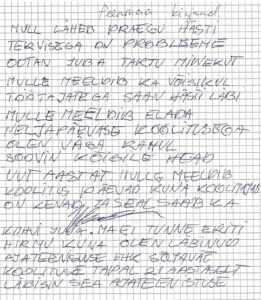 MULL LÄHEB PRAEGU HÄSTI
TERVISEGA ON PROBLEEME
OOTAN JUBA TARTU MINEKUT
MULLE MEELDIB KA VÕISIKUL
TÖÖTAJATEGA SAAN HÄSTI LÄBI
MULLE MEELDIB ELADA
NELJAPÄEVASE KOOLITUSEGA
OLEN VÄGA RAHUL
SOOVIN KÕIGILE HEAD
UUT AASTAT MULLE MEELDIB
KOOLITUS PÄEVAD KUNA KOOLITAJAD
ON KENAD JA SEAL SAAB KA
KOHVI JUUA. MA EI TUNNE ERITI
HIRMU KUNA OLEN LÄBINUD
AJATEENISTUSE EHK SÕJAVÄE
KOOLITUSE TÄPAL 21 AASTASELT
LÄBISIN SEA AJATEENISTUSE